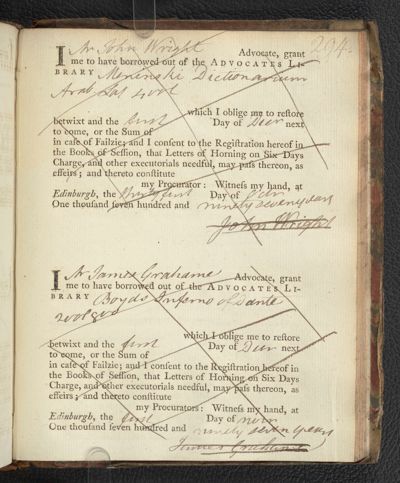 294.
I Mr John Wright Advocate, grant
me to have borrowed out of the ADVOCATES LI-
BRARY Meninski Dictionarium
Arab. Las 4 vol
which I oblige me to reſtore
betwixt and the first Day of Decr next
to come, or the Sum of
in caſe of Failzie; and I conſent to the Regiſtration hereof in
the Books of Seſſion, that Letters of Horning on Six Days
Charge, and other executorials needful, may paſs thereon, as
effeirs; and thereto conſtitute
my Procurator: Witneſs my hand, at
Edinburgh, the Day of
One thouſand ſeven hundred and ninety seven years
John Wright
I Mr James Grahame Advocate, grant
me to have borrowed out of the ADVOCATES LI-
BRARY Boyds Inferno of Dante
2 vol 8vo
which I oblige me to reſtore
betwixt and the first Day of Decr next
to come, or the Sum of
in caſe of Failzie; and I conſent to the Regiſtration hereof in
the Books of Seſſion, that Letters of Horning on Six Days
Charge, and other executorials needful, may paſs thereon, as
effeirs; and thereto conſtitute
my Procurators: Witneſs my hand, at
Edinburgh, the first Day of Novr
One thouſand ſeven hundred and ninety seven years
James Grahame